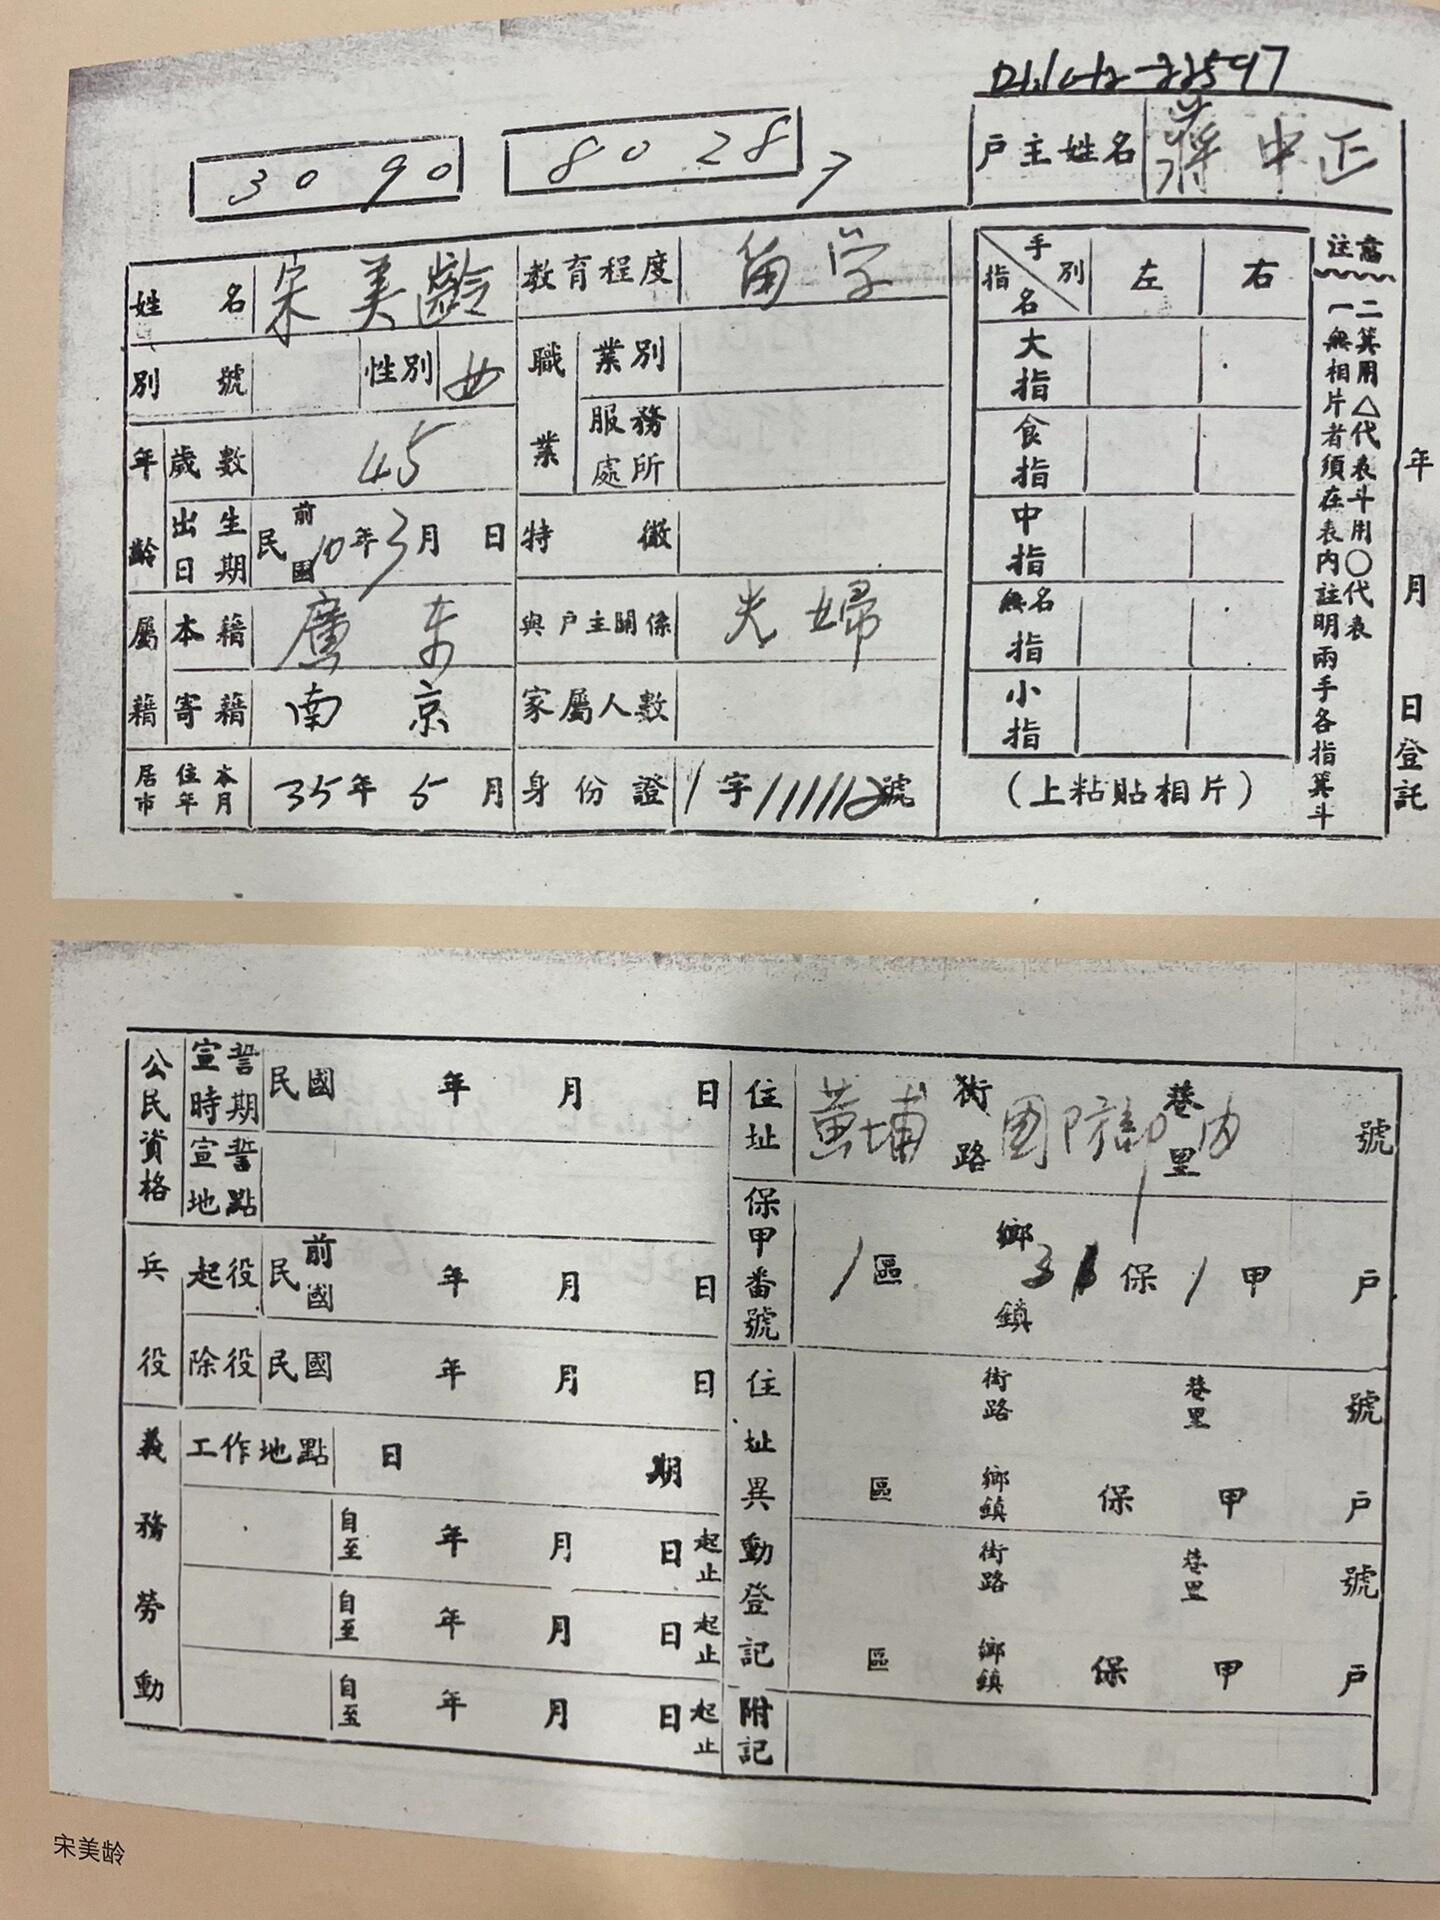 3090
8028
户主姓名 蔣中正
姓名 宋美齡
別號
性別 女
年齡
歲數 45
出生日期 民國前10年3月 日
屬籍
本籍 廣东
寄籍 南京
居住本市年月 35年5月
教育程度 留学
職業
業別
服務處所
特徵
與户主關係 夫婦
家屬人數
身份證 1字111112號
手別 指名 左 右
大指
食指
中指
無名指
小指
(上粘貼相片)
註意
一無相片者須在表内註明兩手各指箕斗
二箕用△代表斗用○代表
年 月 日登記
公民資格
宣誓時期 民國 年 月 日
宣誓地點
兵役
起役 民國前 年 月 日
除役 民國 年 月 日
義務勞動
工作地點 日期
自至 年 月 日起止
自至 年 月 日起止
自至 年 月 日起止
住址 黃埔街路 国防部内巷里 號
保甲番號 1區 鄉鎮 保1甲 户
住址異動登記
街路 巷里 號
區 鄉鎮 保 甲 户
街路 巷里 號
區 鄉鎮 保 甲 户
附記
宋美龄